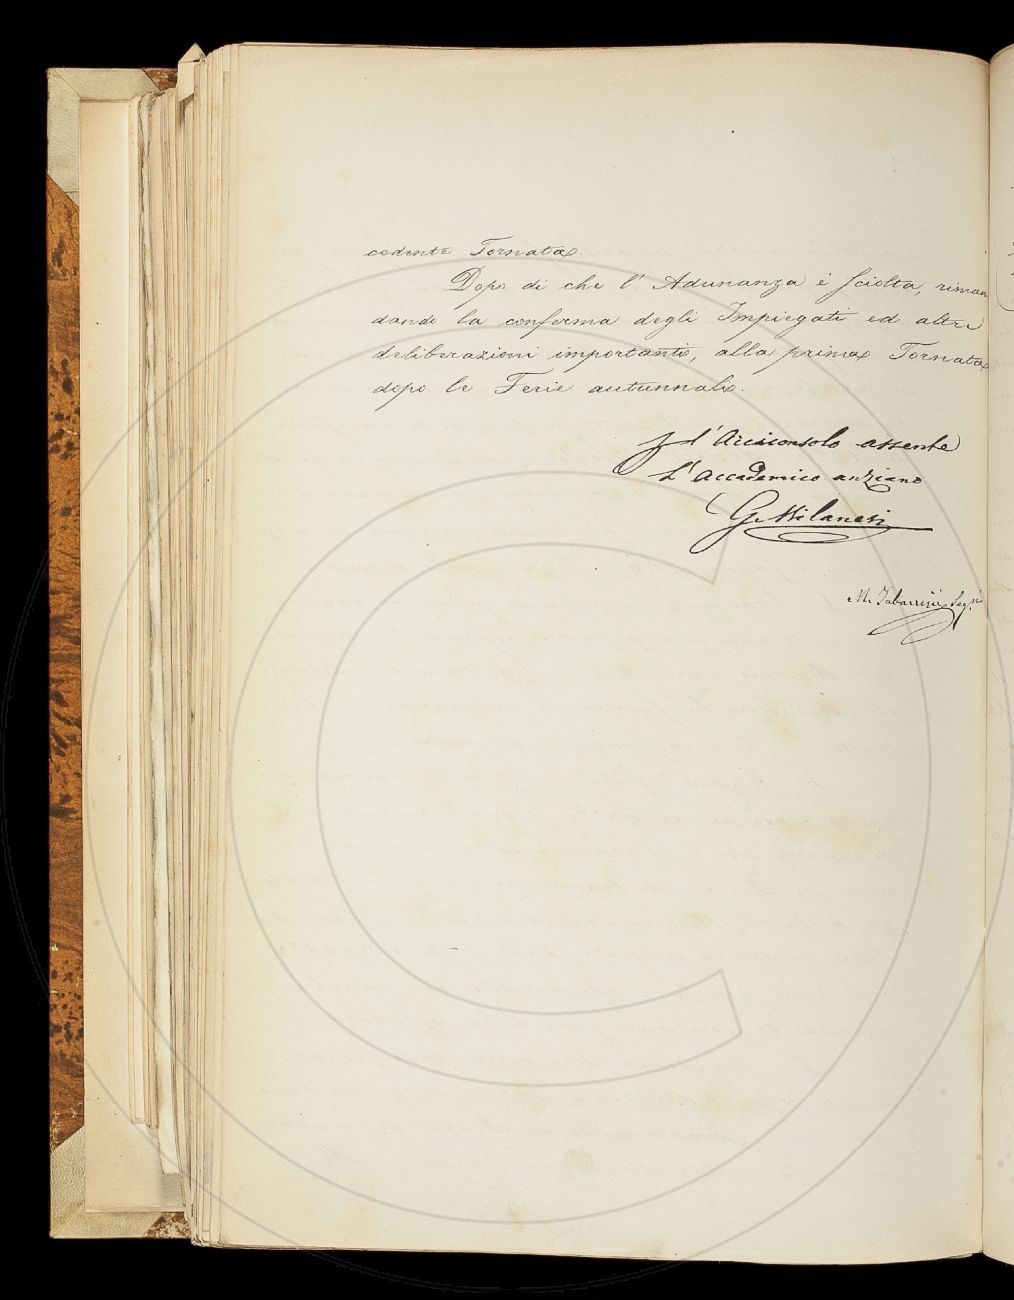 cedente Tornata.
Dopo di che l' Adunanza è sciolta, riman
dando la conferma degli Impiegati ed altre
deliberazioni importanti, alla prima Tornata
dopo le Ferie autunnali.
l' Arciconsolo assente
L' Accademico anziano
G. Milanesi
M. Tabarrini Seg.rio